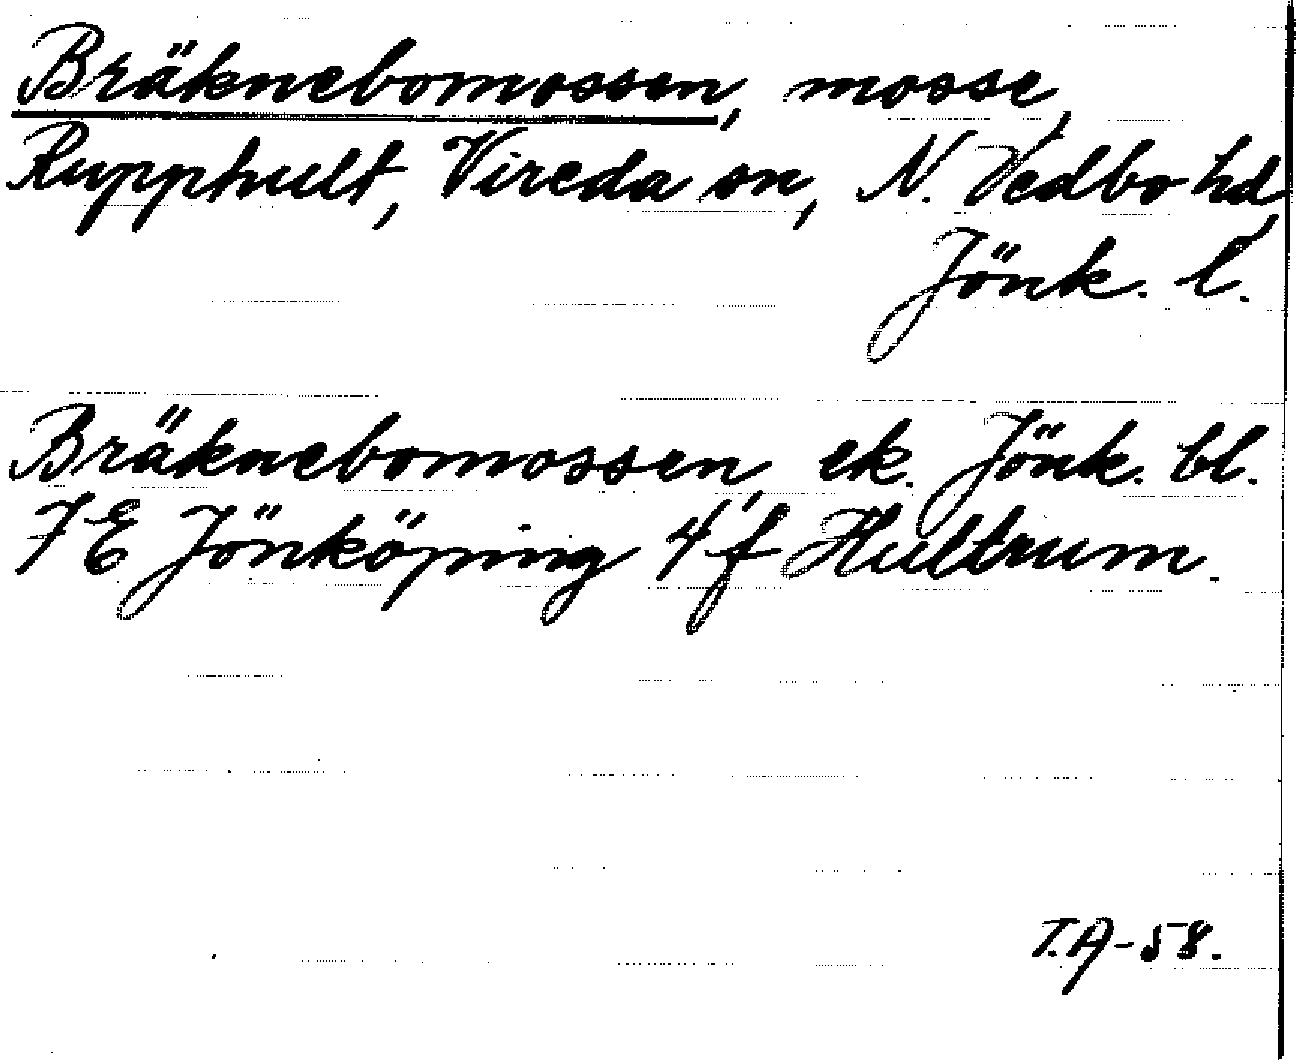 Bräknebomossen, mosse,
Rupphult, Vireda sn, N. Vedbo hd,
Jönk. l.
Bräknebomossen, ek. Jönk. bl.
7E Jönköping 4f Hultrum.
T.A-58.